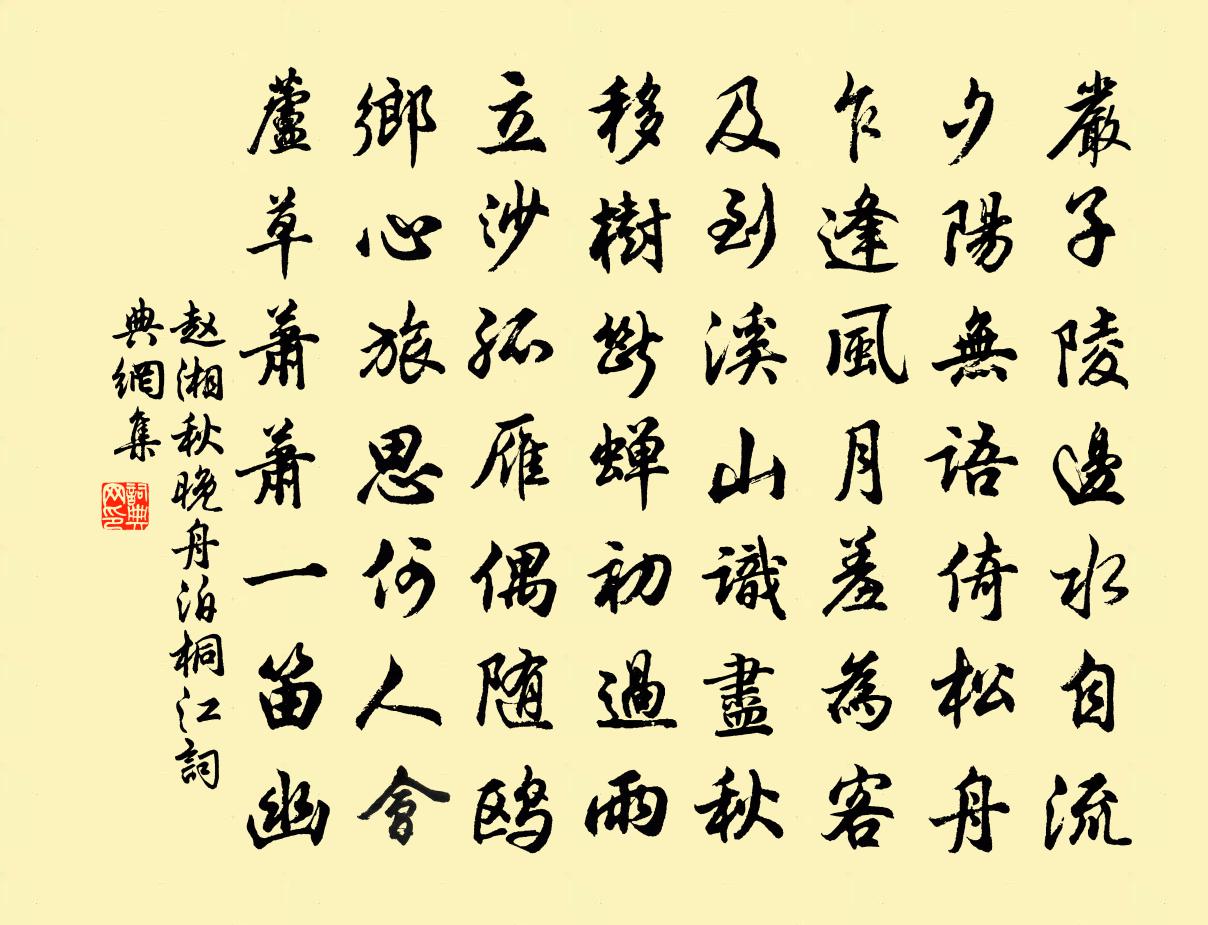 嚴子陵邊水自流
夕陽無語倚松舟
乍逢風月羞為客
及到溪山識盡秋
移樹斷蟬初過雨
立沙孤雁偶随鸥
鄉心旅思何人會
蘆草蕭蕭一笛幽
赵湘秋晚舟泊桐江詞
典網集
詞典
网印